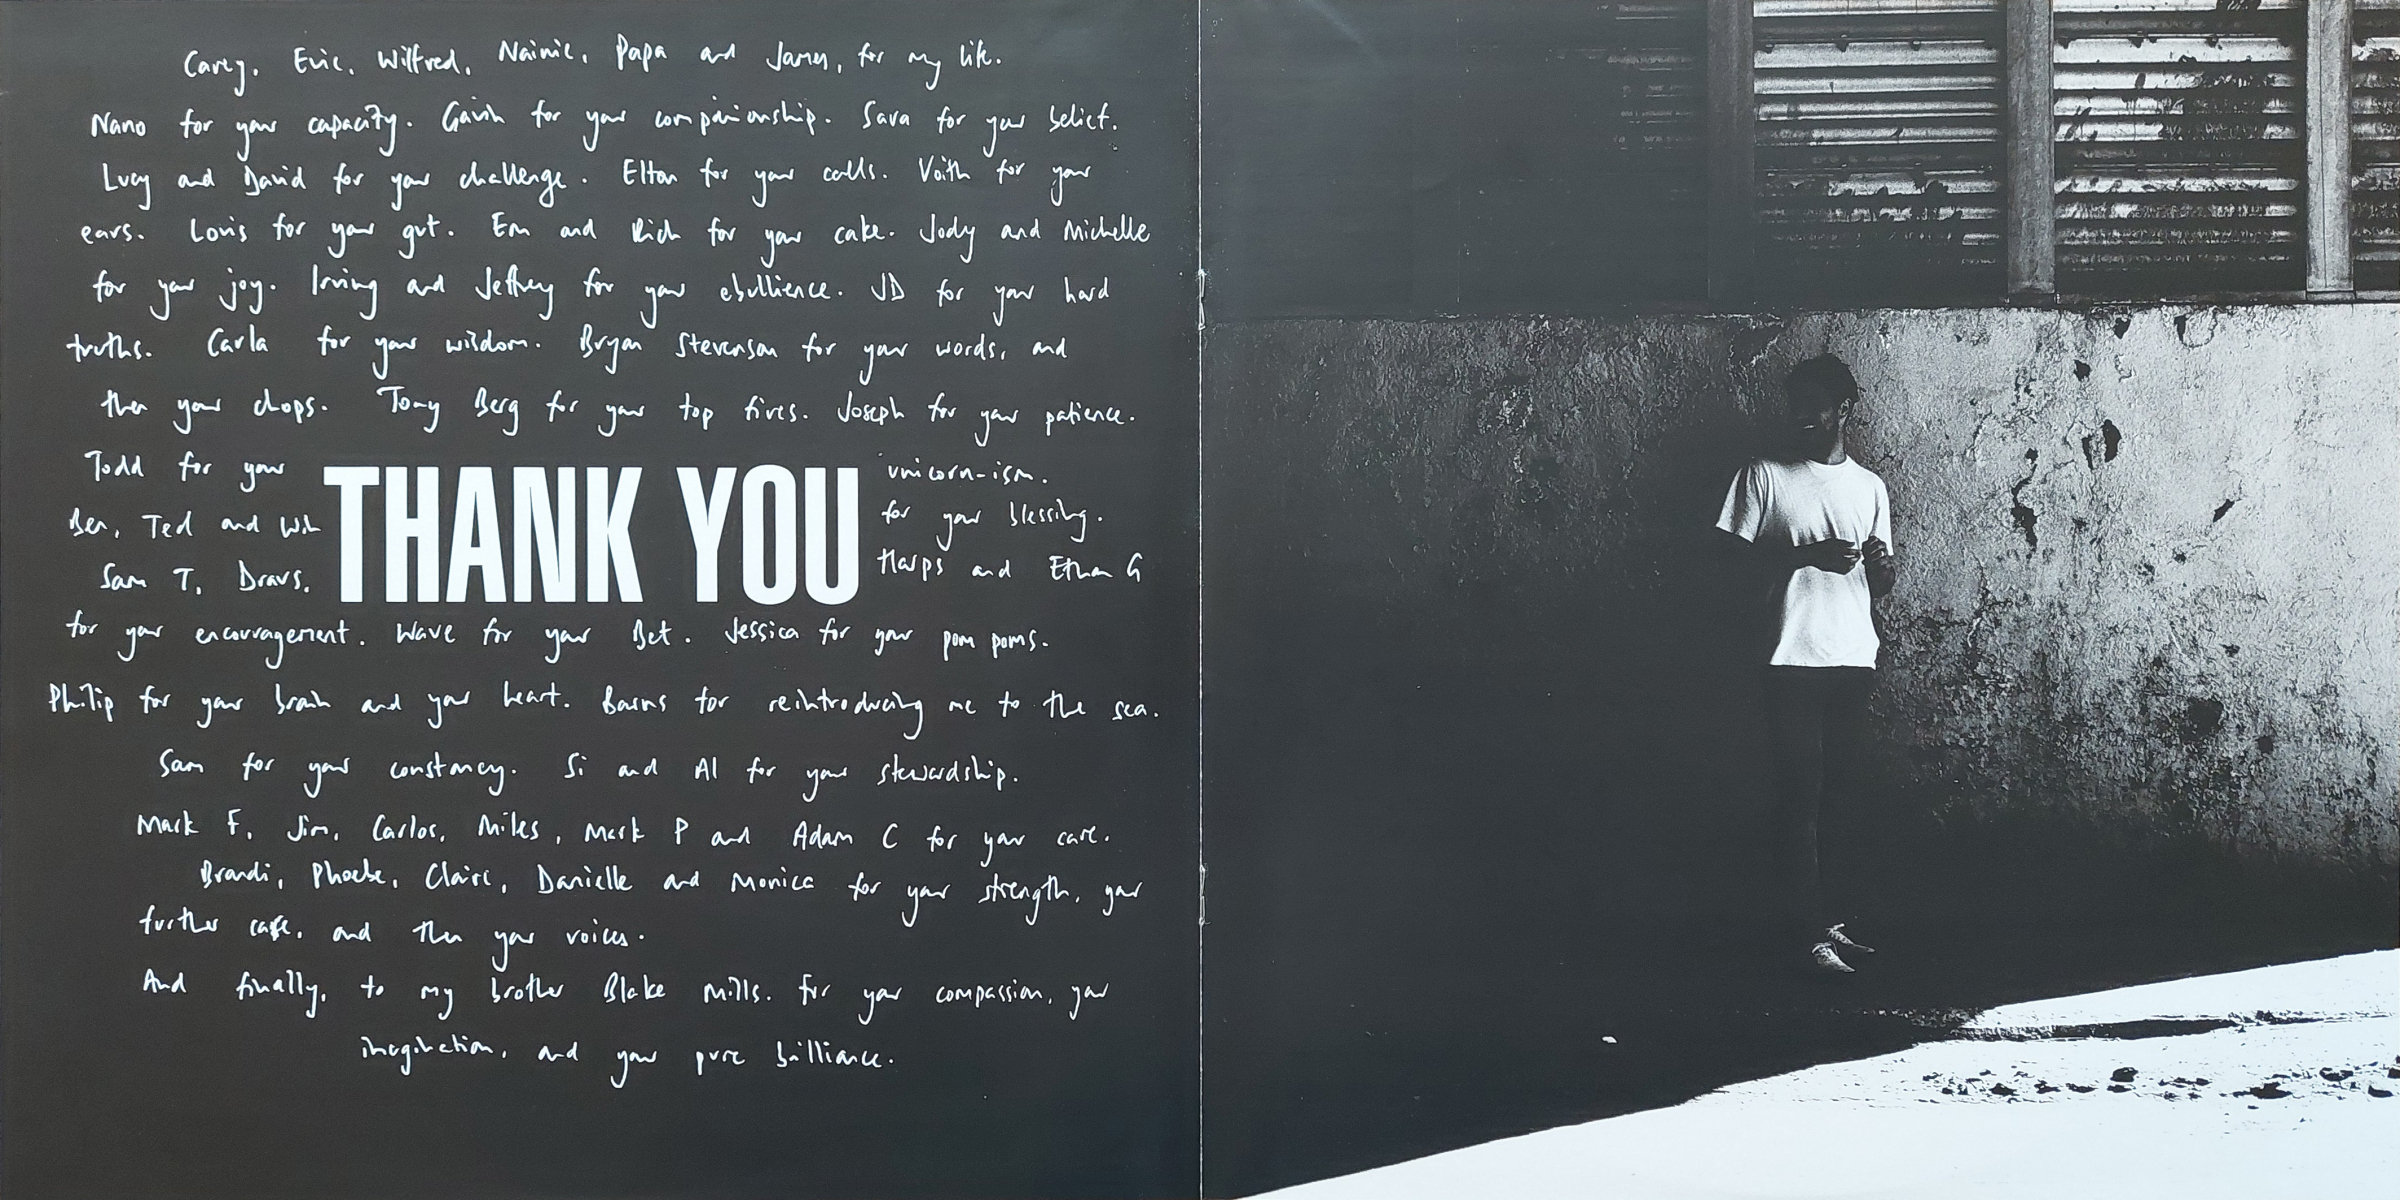 Carey, Evie, Wilfred, Nainie, Papa and James, for my life.
Nano for your capacity. Gavin for your companionship. Sara for your belief.
Lucy and David for your challenge. Elton for your calls. Voith for your
ears. Louis for your gut. Em and Rich for your cake. Jody and Michelle
for your joy. Irving and Jeffrey for your ebullience. JD for your hard
truths. Carla for your wisdom. Bryan Stevenson for your words, and
then your chops. Tony Berg for your top fives. Joseph for your patience.
Todd for your unicorn-ism.
Ben, Ted and Win for your blessing.
THANK YOU
Sam T, Dravs, Harps and Ethan G
for your encouragement. Wave for your Bet. Jessica for your pom poms.
Philip for your brain and your heart. Barns for reintroducing me to the sea.
Sam for your constancy. Si and Al for your stewardship.
Mark F, Jim, Carlos, Miles, Mark P and Adam C for your care.
Brandi, Phoebe, Claire, Danielle and Monica for your strength, your
further care, and then your voices.
And finally, to my brother Blake Mills. For your compassion, your
imagination, and your pure brilliance.